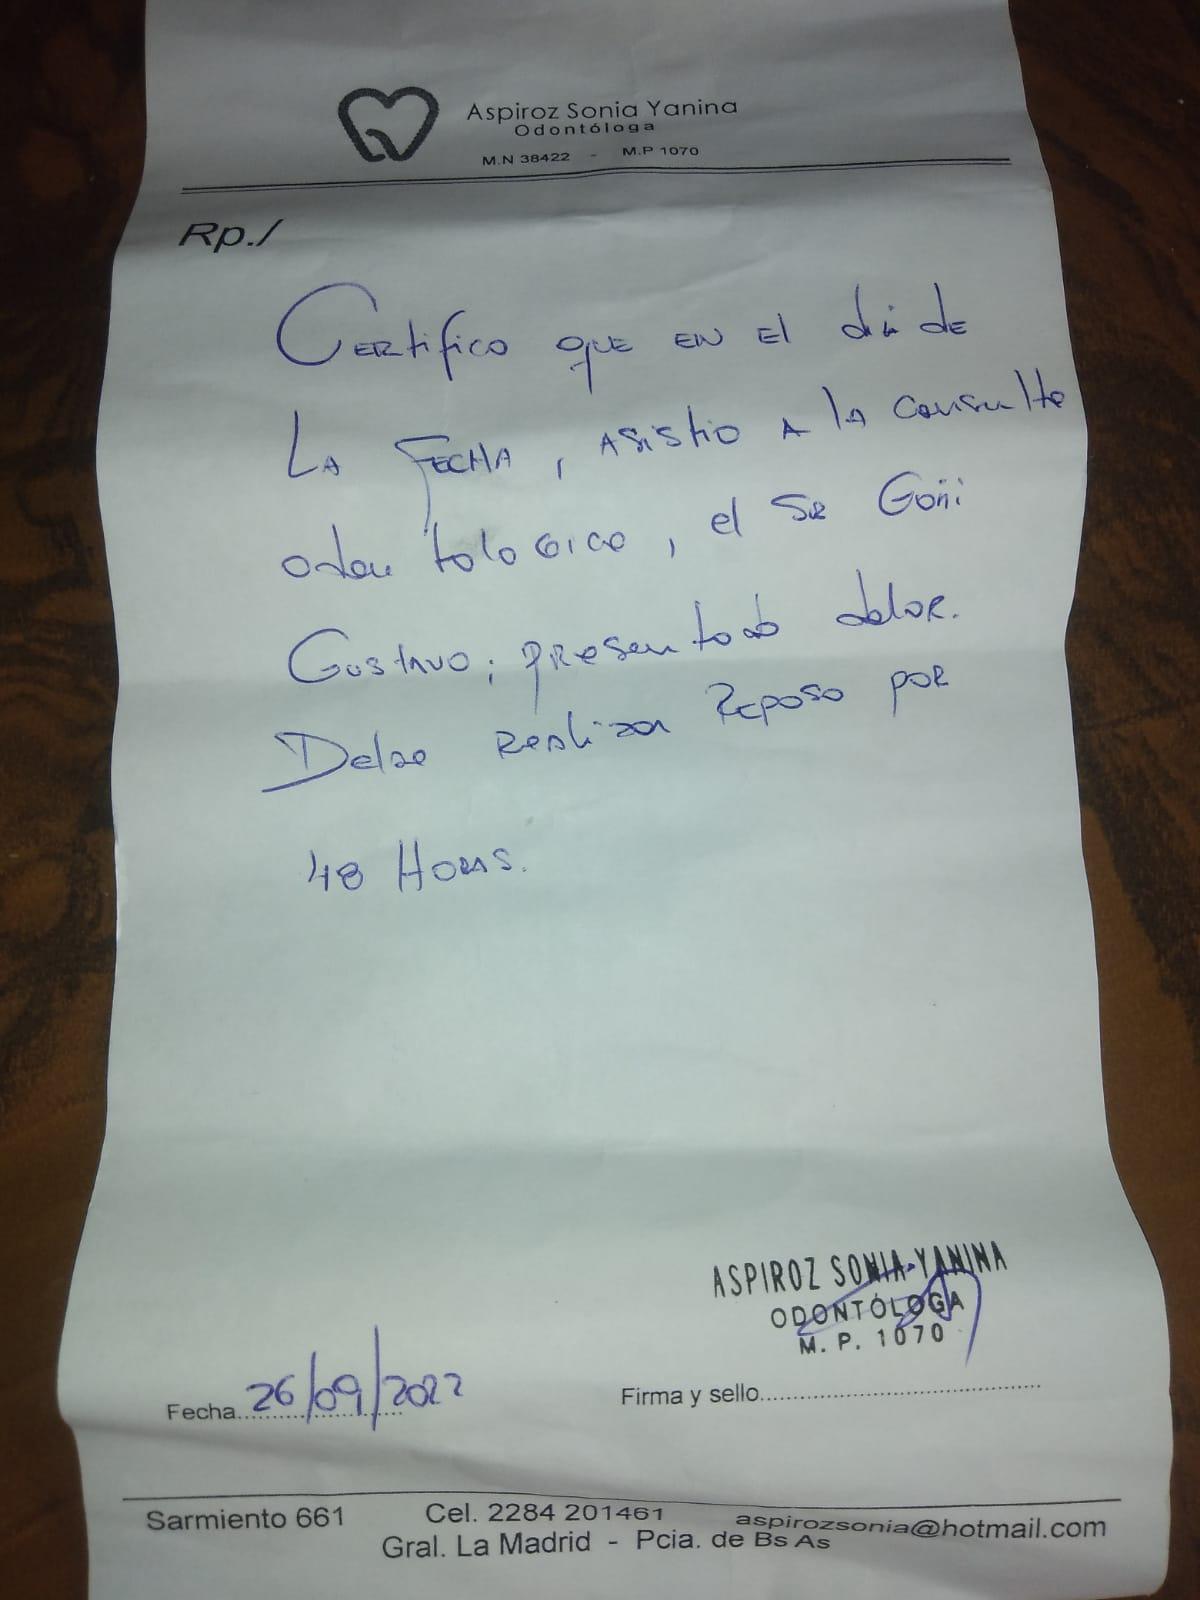 Aspiroz Sonia Yanina
Odontóloga
M.N 38422 - M.P 1070
Rp./
Certifico que en el día de
La Fecha, asistio a la consulta
odontologica, el Sr Goñi
Gustavo; presentado dolor.
Debe realizar Reposo por
48 Horas.
ASPIROZ SONIA YANINA
ODONTÓLOGA
M. P. 1070
Fecha 26/09/2022
Firma y sello
Sarmiento 661 Cel. 2284 201461 aspirozsonia@hotmail.com
Gral. La Madrid - Pcia. de Bs As